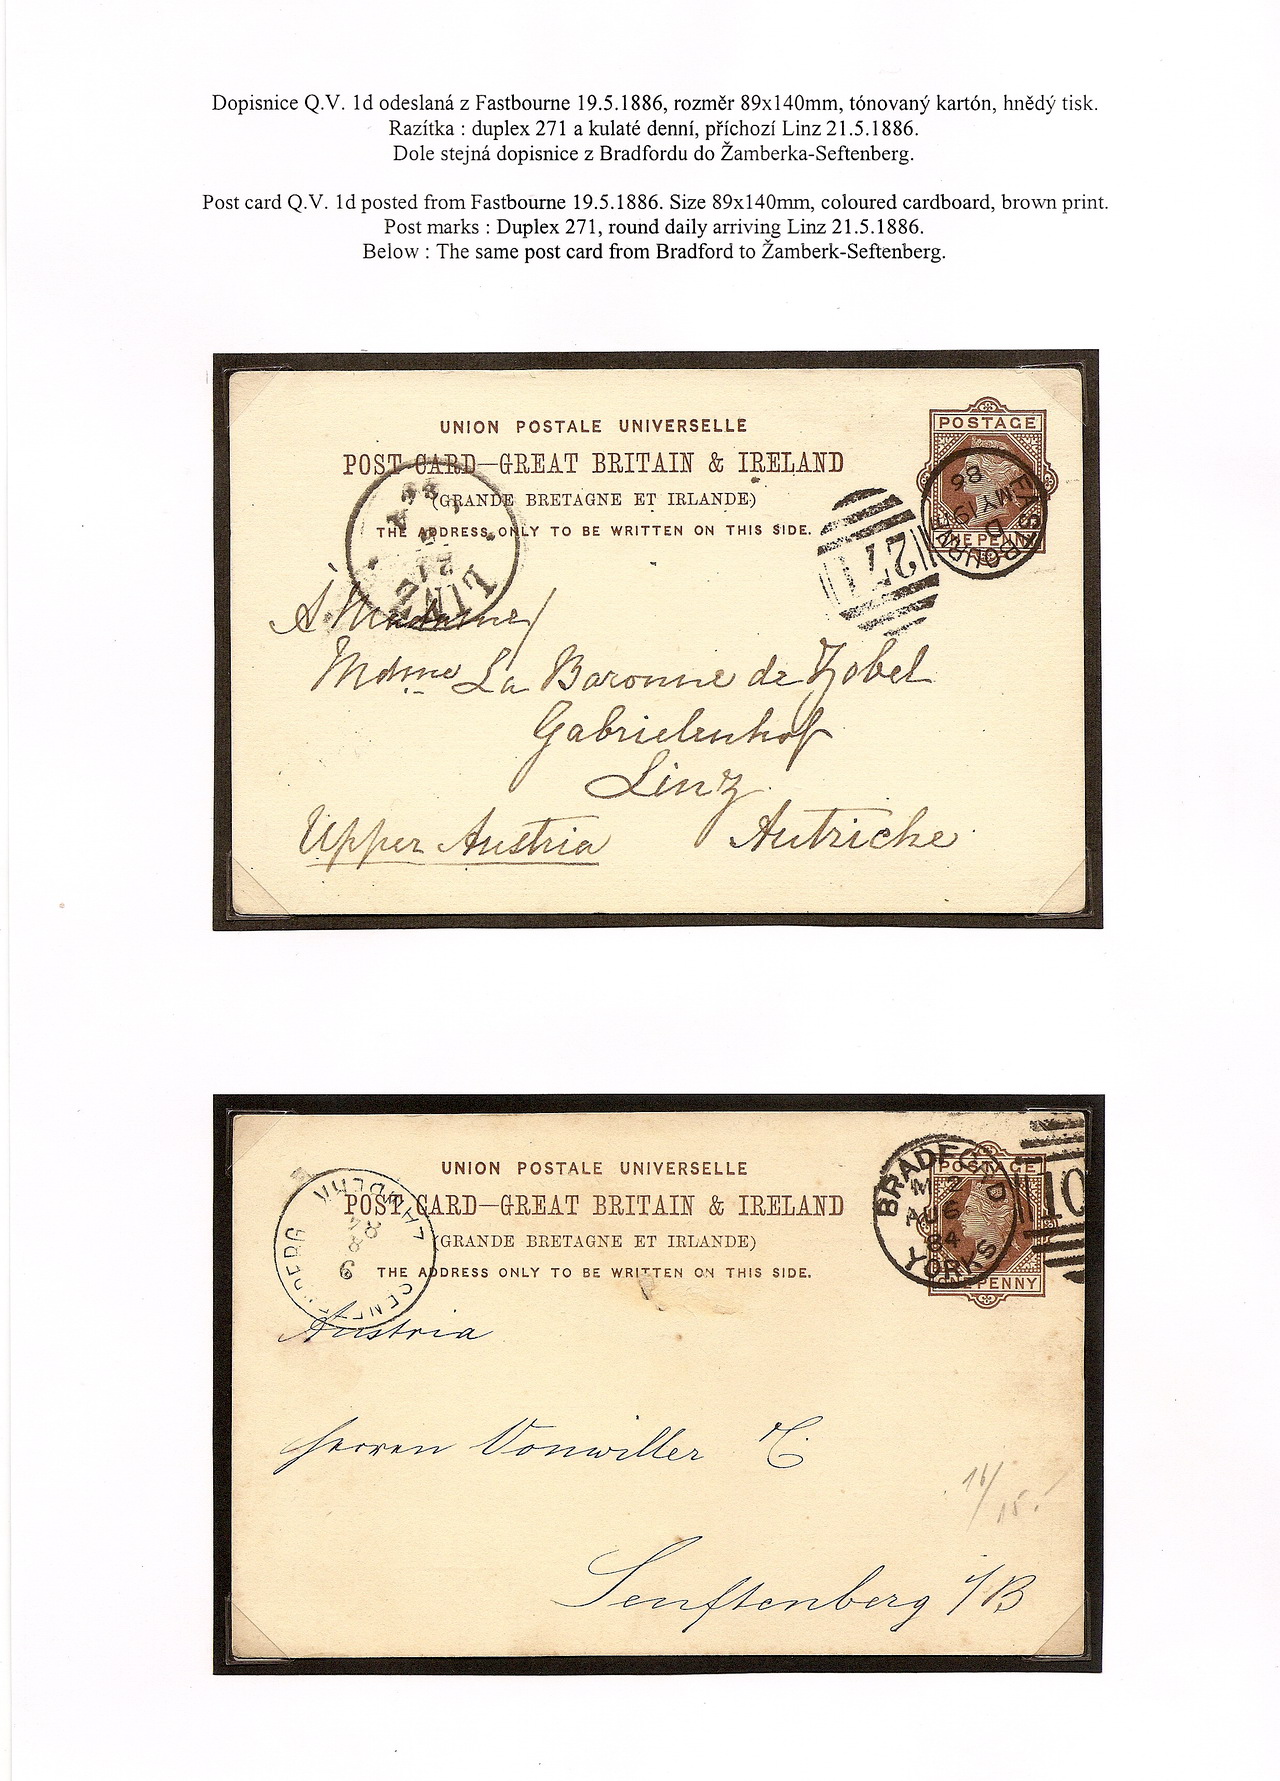 Dopisnice Q.V. 1d odeslaná z Fastbourne 19.5.1886, rozměr 89x140mm, tónovaný kartón, hnědý tisk.
Razítka : duplex 271 a kulaté denní, příchozí Linz 21.5.1886.
Dole stejná dopisnice z Bradfordu do Žamberka-Seftenberg.
Post card Q.V. 1d posted from Fastbourne 19.5.1886. Size 89x140mm, coloured cardboard, brown print.
Post marks : Duplex 271, round daily arriving Linz 21.5.1886.
Below : The same post card from Bradford to Žamberk-Seftenberg.
UNION POSTALE UNIVERSELLE
POST CARD—GREAT BRITAIN & IRELAND
(GRANDE BRETAGNE ET IRLANDE)
THE ADDRESS ONLY TO BE WRITTEN ON THIS SIDE.
POSTAGE
ONE PENNY
EASTBOURNE
D
MY 19
86
271
LINZ
21
À Madame/
Mdme La Baronne de Zobel
Gabrielenhof
Linz
Upper Austria Autriche
UNION POSTALE UNIVERSELLE
POST CARD—GREAT BRITAIN & IRELAND
(GRANDE BRETAGNE ET IRLANDE)
THE ADDRESS ONLY TO BE WRITTEN ON THIS SIDE.
POSTAGE
ONE PENNY
BRADFORD
M 2
AU 6
84
YORKS
10
9
8
84
Austria
Herren Vonwiller C.
Senftenberg i/B
16/15.